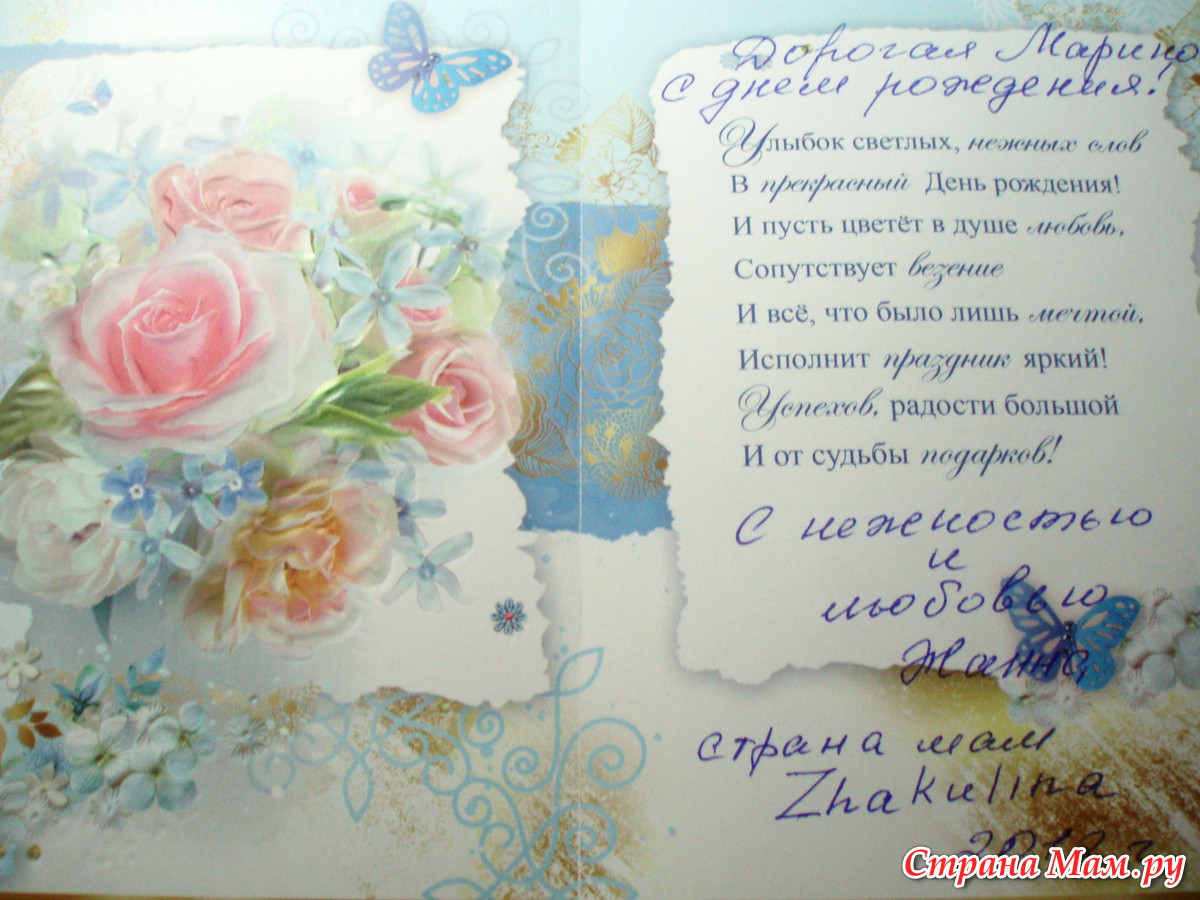 Дорогая Марина
с днем рождения.
Улыбок светлых, нежных слов
В прекрасный День рождения!
И пусть цветёт в душе любовь,
Сопутствует везение
И всё, что было лишь мечтой,
Исполнит праздник яркий!
Успехов, радости большой
И от судьбы подарков!
С нежностью
и
любовью
Жанна
страна мам
Zhakulina
Страна Мам.ру